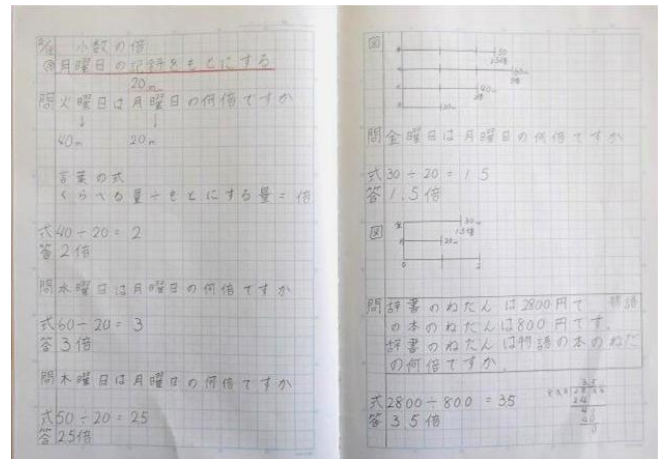 小数の倍
月曜日の記録をもとにする
20m
問 火曜日は月曜日の何倍ですか
↓ ↓
40m 20m
言葉の式
くらべる量÷もとにする量=倍
式 40÷20=2
答 2倍
問 水曜日は月曜日の何倍ですか
式 60÷20=3
答 3倍
問 木曜日は月曜日の何倍ですか
式 50÷20=2.5
答 2.5倍
図
50
2.5倍
60m
3倍
40m
2倍
20m
問 金曜日は月曜日の何倍ですか
式 30÷20=1.5
答 1.5倍
図
30m
1.5倍
20m
0
問 辞書のねだんは2800円で 物語
の本のねだんは800円です。
辞書のねだんは物語の本のねだ
の何倍ですか。
式 2800÷800=3.5
答 3.5倍